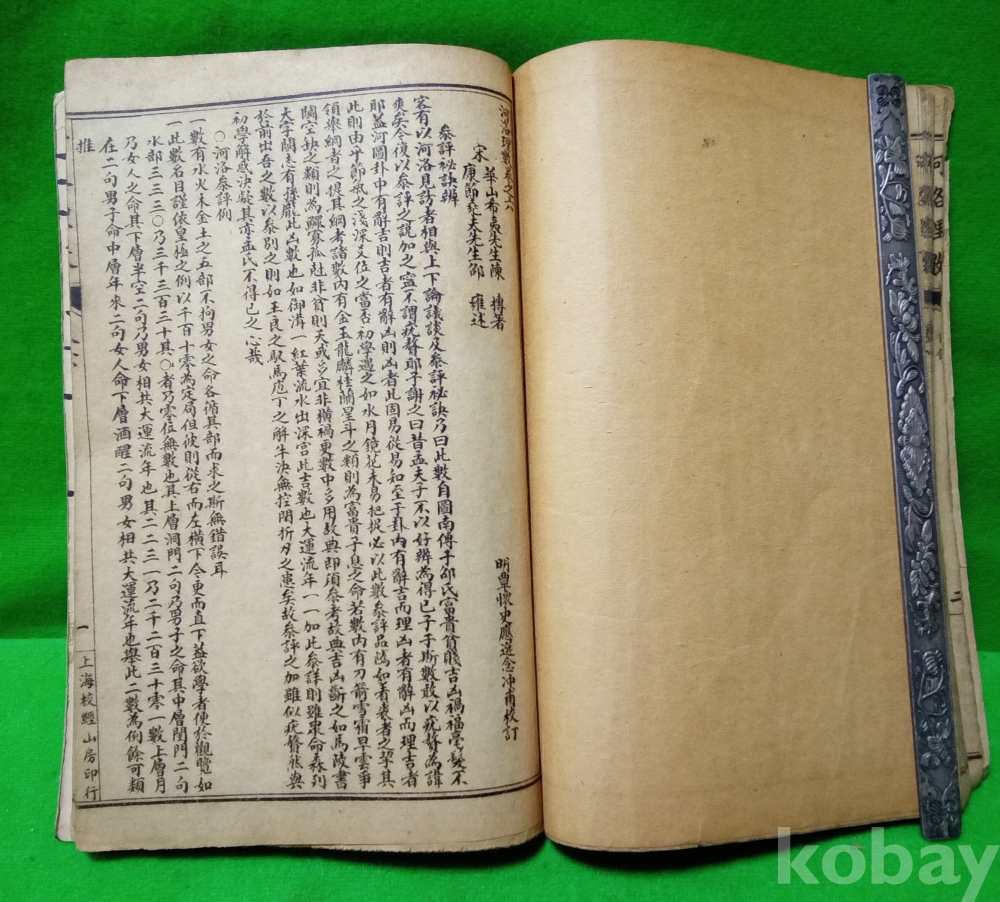 河洛理數卷之六
華山希夷先生陳　摶著
宋　康節堯夫先生邵　雍述
明豐懷史應選念冲甫校訂
參評祕訣辨
客有以河洛見訪者相與上下論議談及參評祕訣乃曰此數自圖南傳于邵氏富貴貧賤吉凶禍福毫髮不
爽矣今復以參評之說加之寧不謂疣贅耶予謝之曰昔孟夫子不以好辨為得已予于斯數敢以疣贅為諱
耶蓋河圖卦中有辭吉則吉者有辭凶則凶者此固易從易知至于卦內有辭吉而理凶者有辭凶而理吉者
此則由乎節氣之淺深爻位之當否初學遇之如水月鏡花未易把捉必以此數參評品隲如著裘者之挈其
領舉綱者之提其綱考諸數內有金玉龍麟桂蘭星斗之類則為富貴子息之命若數內有刀箭雪霜旱雲爭
鬪空缺之類則為鰥寡孤尅非貧則夭或多宜非橫禍更數中多用故典即須參考故典吉凶斷之如馬陵書
大字關志有孫龐此凶數也如御溝一紅葉流水出深宮此吉數也大運流年一一加此參詳則雖眾命森列
於前出吾之數以參別之則如王良之馭馬庖丁之解牛決無控閑折刃之患矣故參評之加雖似疣贅然與
初學解惑決疑其亦孟氏不得已之心哉
○河洛參評例
一數有水火木金土之五部不拘男女之命各循其部而求之斯無錯誤耳
一此數名目謹依皇極之例以千百十零為定局但彼則從右而左橫下今更而直下蓋欲學者便於觀覽如
水部三三三○乃三千三百三十其○者乃零位無數也其上層洞門二句乃男子之命其中層閨門二句
乃女人之命其下層半空二句乃男女相共大運流年也其二二三一乃二千二百三十零一數上層月
在二句男子命中層年來二句女人命下層酒醒二句男女相共大運流年也舉此二數為例餘可類
推
一
上海校經山房印行
河洛理數
二
kobay